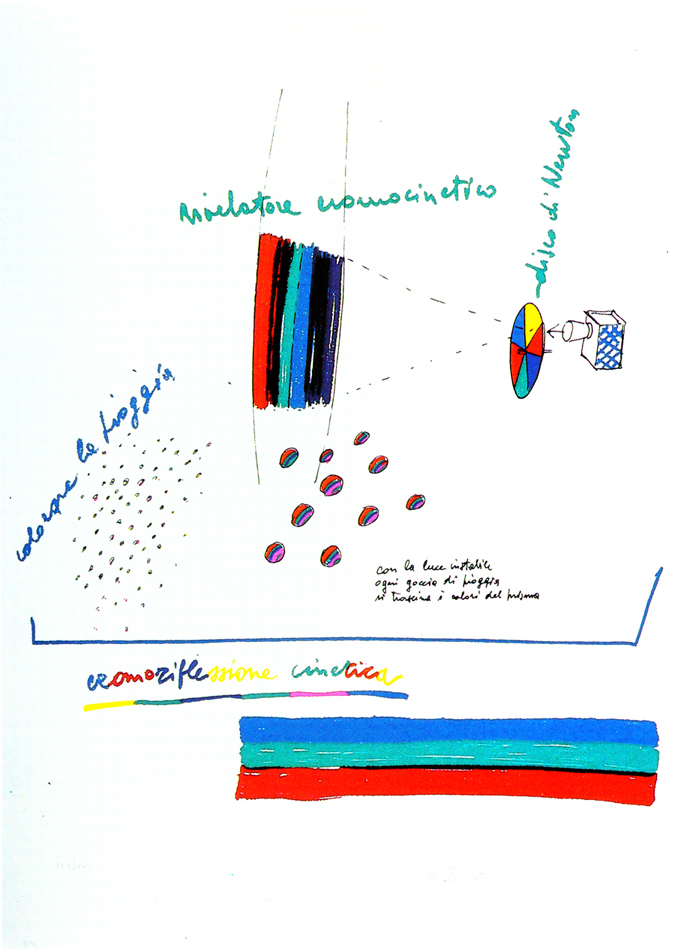 disco di Newton
rivelatore cromocinetico
colorare la pioggia
con la luce instabile
ogni goccia di pioggia
si trascina i colori del prisma
cromoriflessione cinetica